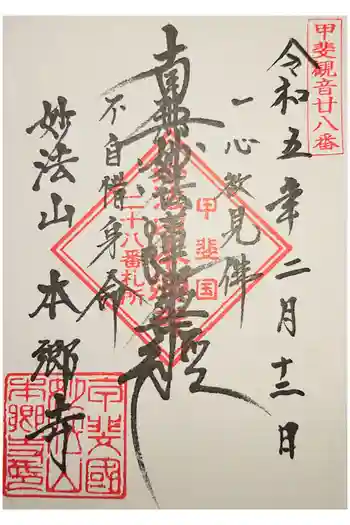 甲斐観音廿八番
令和五年二月十二日
一心欲見佛
南無妙法蓮華経
不自惜身命
甲斐国
二十八番札所
妙法山 本郷寺
甲斐國
妙法山
本郷寺